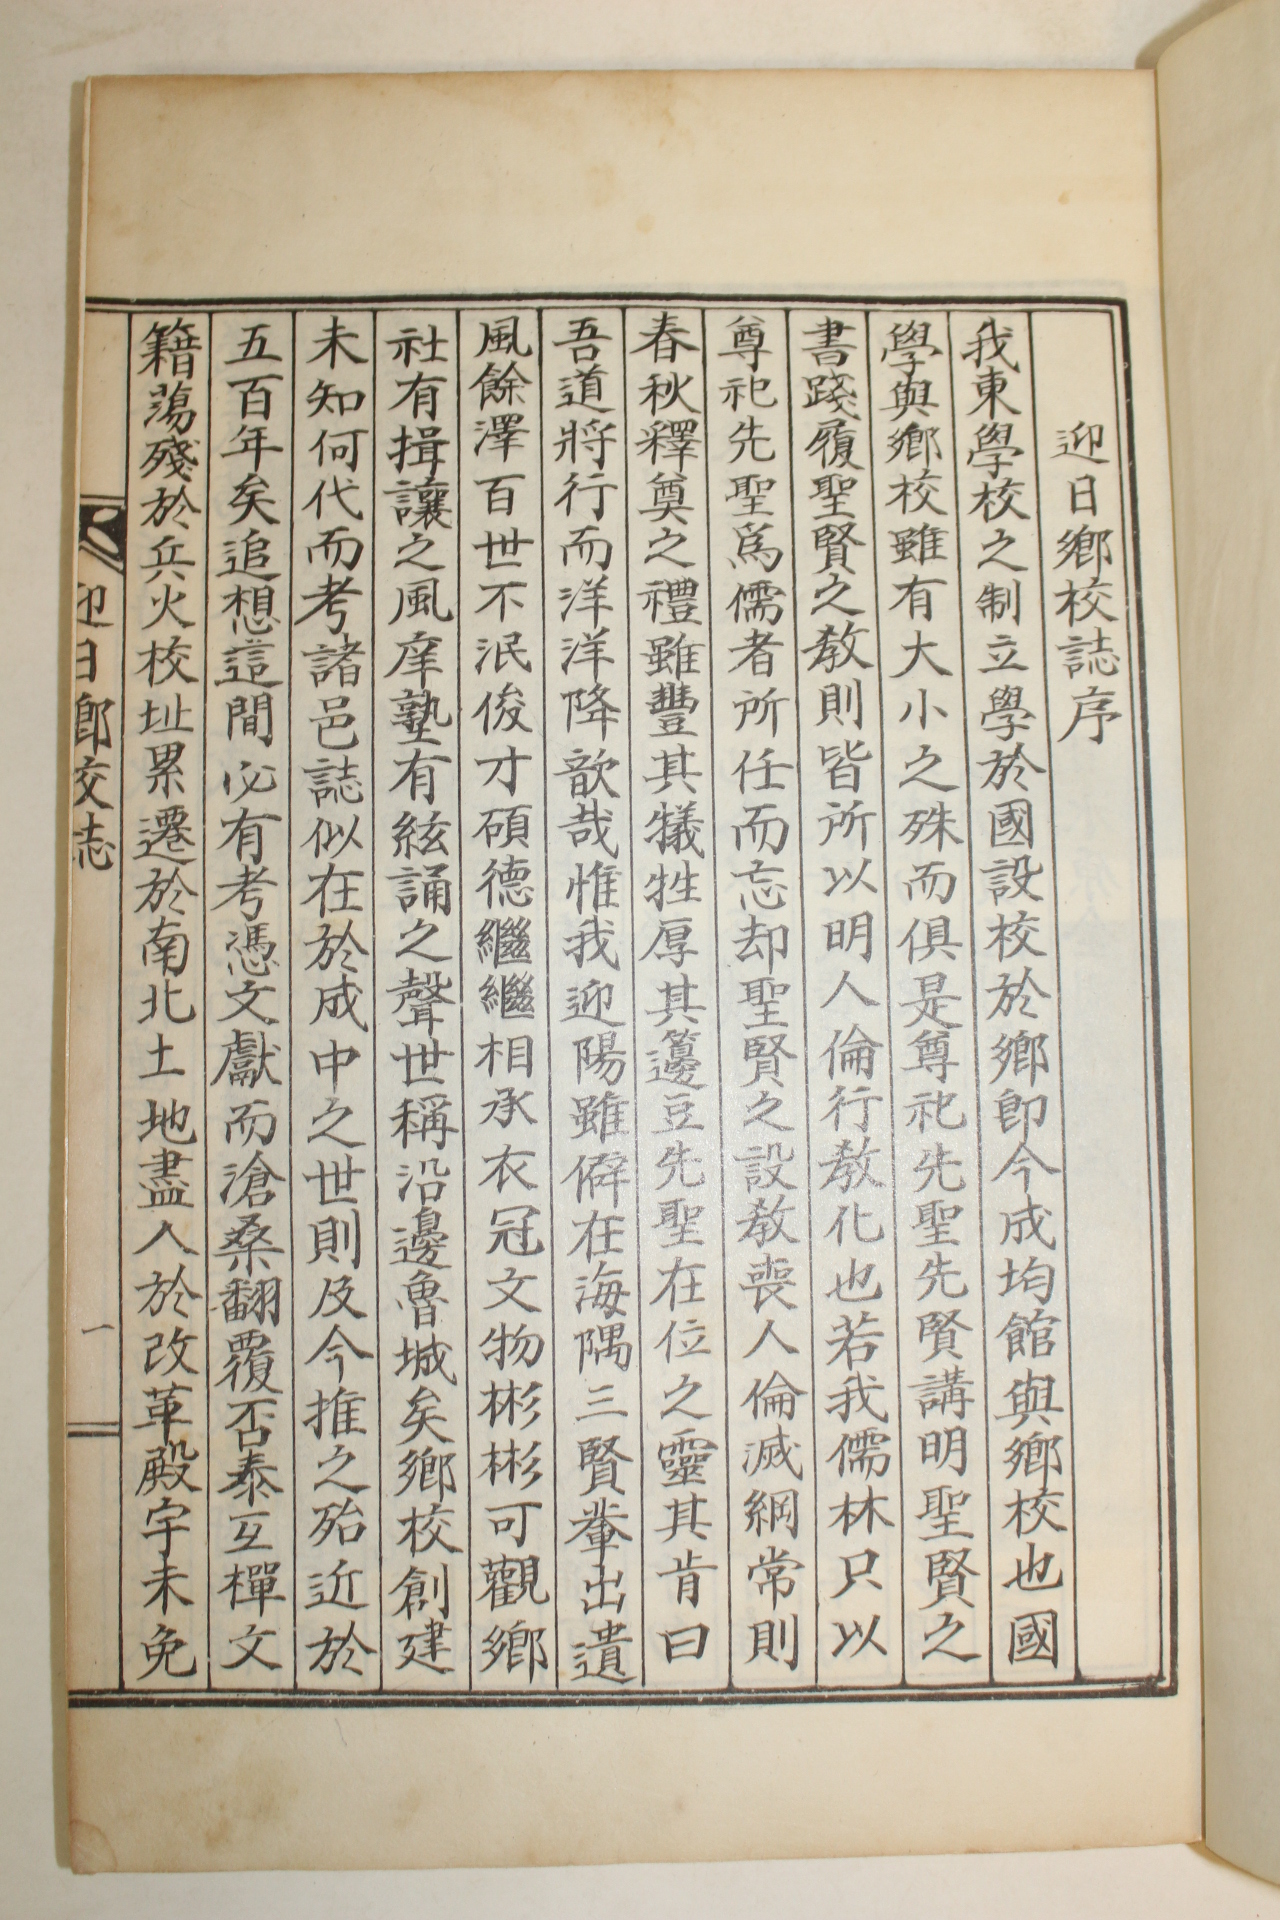 迎日鄕校誌序
我東學校之制立學於國設校於鄕卽今成均館與鄕校也國
學與鄕校雖有大小之殊而俱是尊祀先聖先賢講明聖賢之
書踐履聖賢之敎則皆所以明人倫行敎化也若我儒林只以
尊祀先聖爲儒者所任而忘却聖賢之設敎喪人倫滅綱常則
春秋釋奠之禮雖豐其犧牲厚其籩豆先聖在位之靈其肯曰
吾道將行而洋洋降歆哉惟我迎陽雖僻在海隅三賢輩出遺
風餘澤百世不泯俊才碩德繼繼相承衣冠文物彬彬可觀鄕
社有揖讓之風庠塾有絃誦之聲世稱沿邊魯城矣鄕校創建
未知何代而考諸邑誌似在於成中之世則及今推之殆近於
五百年矣追想這間必有考憑文獻而滄桑翻覆否泰互樿文
籍蕩殘於兵火校址累遷於南北土地盡入於改革殿宇未免
迎日鄕校誌
一